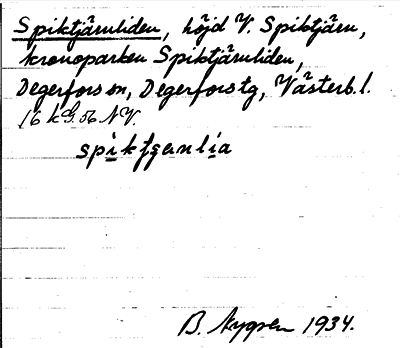 Spiktjärnliden, höjd V. Spiktjärn,
kronoparken Spiktjärnliden,
Degerfors sn, Degerfors tg, Västerb. l.
16 k G. 56 NV.
spikʃʒanlia
B. Nygren 1934.